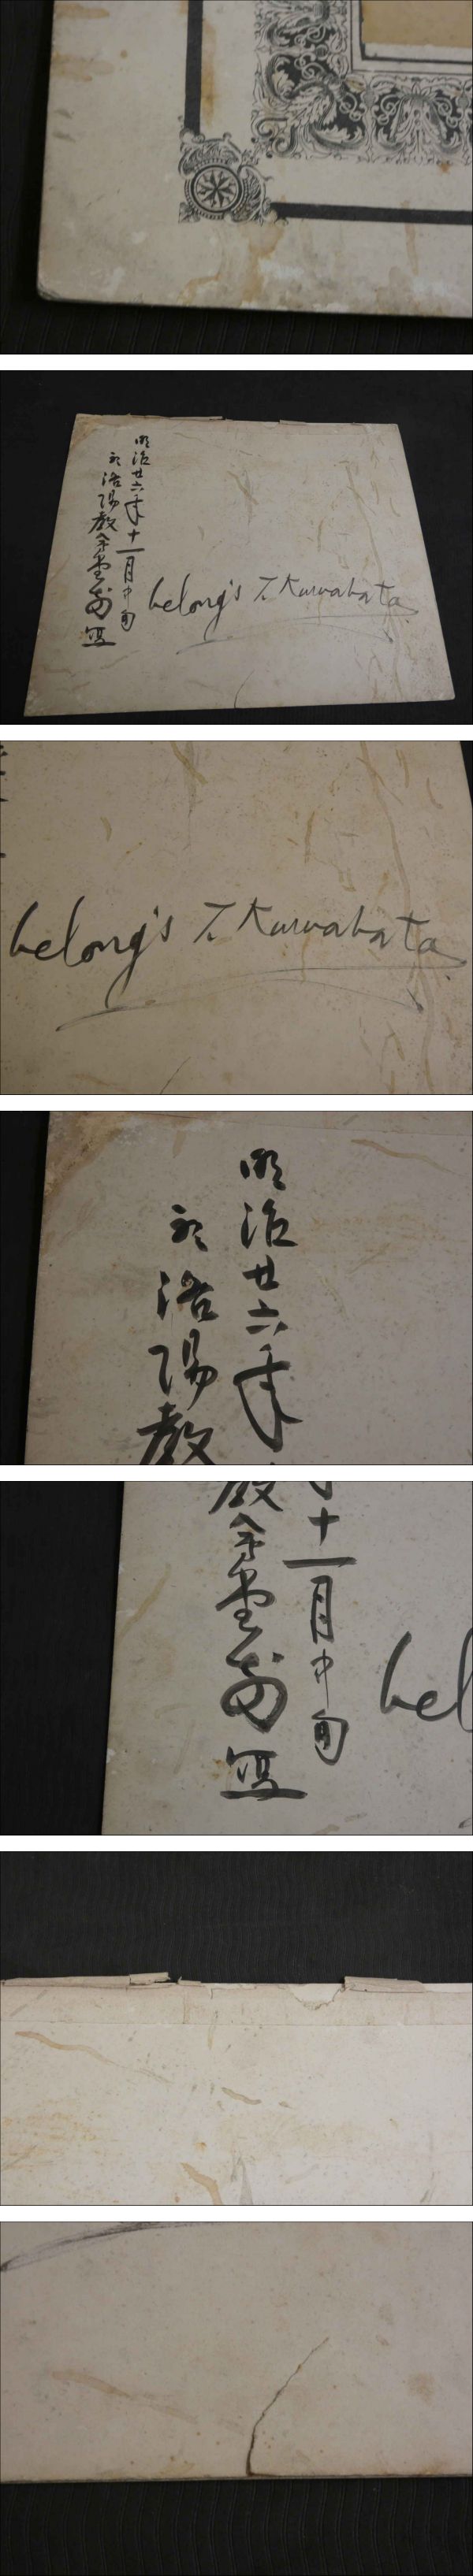 明治廿六年十一月中旬
於洛陽教会堂前写
belong's T. Kuwabata
belong's T. Kuwabata
明治廿六年
於洛陽教
十一月中旬
教会堂前写
bel